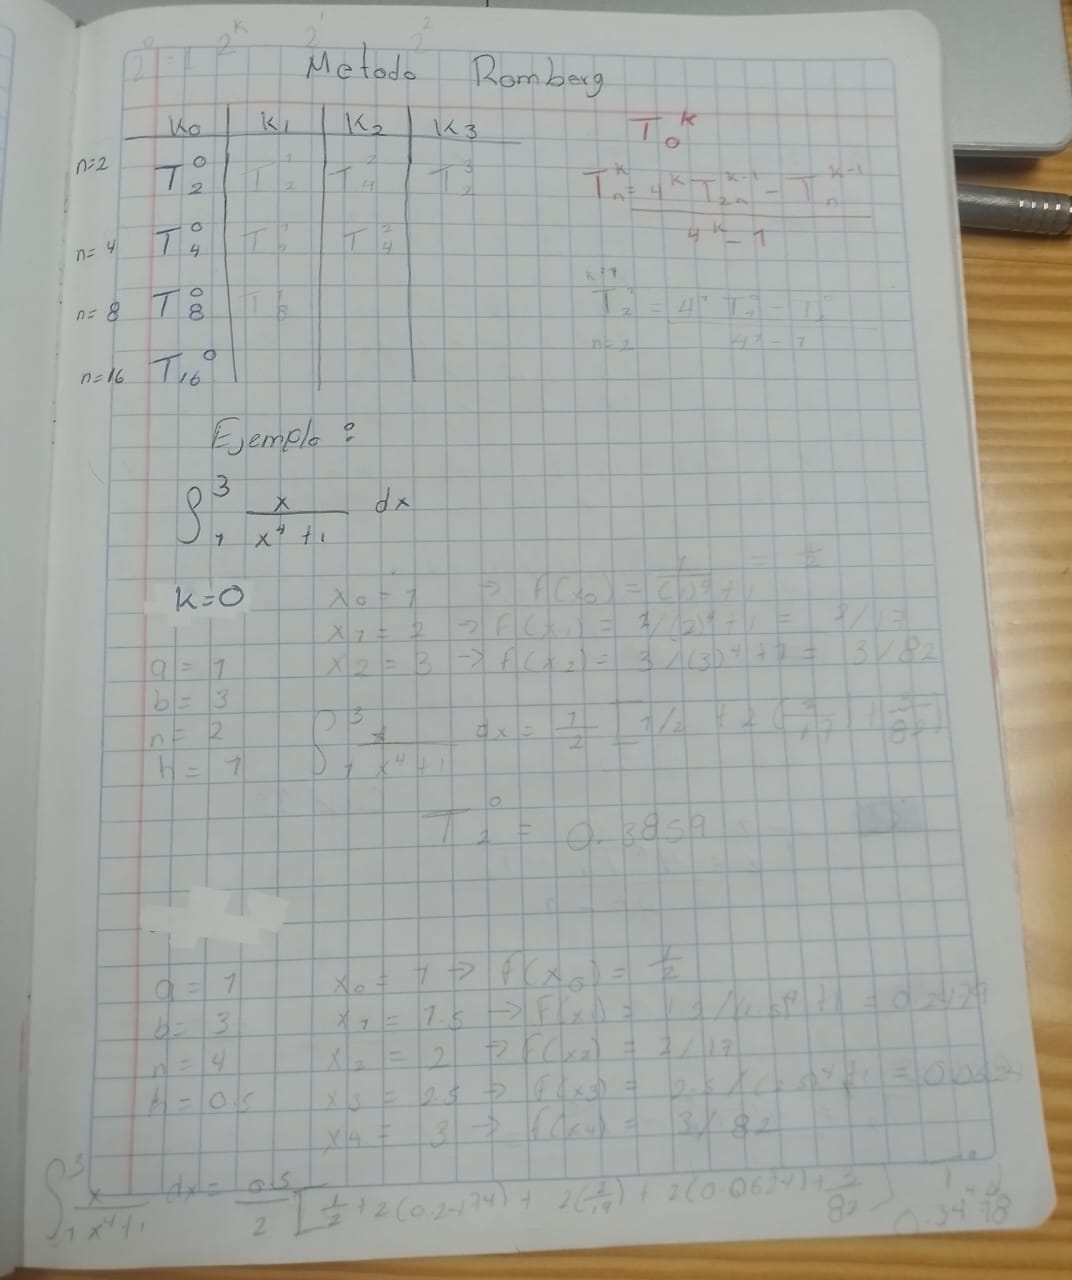 2^0 = 1 2^k 2^1 2^2
Metodo Romberg
K0 K1 K2 K3
n=2 T_2^0 T_2^1 T_4^2 T_2^3
n=4 T_4^0 T_4^1 T_4^2
n=8 T_8^0 T_8^1
n=16 T_16^0
T_0^k
T_n^k = (4^k T_2n^(k-1) - T_n^(k-1)) / (4^k - 1)
k=1
T_2^1 = (4^1 T_4^0 - T_2^0) / (4^1 - 1)
n=2
Ejemplo:
∫_1^3 x/(x^4+1) dx
K=0
x0 = 1 → f(x0) = 1/((1)^4+1) = 1/2
x1 = 2 → f(x1) = 2/(2)^4+1 = 2/17
x2 = 3 → f(x2) = 3/(3)^4+1 = 3/82
a = 1
b = 3
n = 2
h = 1
∫_1^3 x/(x^4+1) dx = 1/2 [1/2 + 2(2/17) + 3/82]
T_2^0 = 0.3859
a = 1
b = 3
n = 4
h = 0.5
x0 = 1 → f(x0) = 1/2
x1 = 1.5 → f(x1) = 1.5/(1.5)^4+1 = 0.2474
x2 = 2 → f(x2) = 2/17
x3 = 2.5 → f(x3) = 2.5/(2.5)^4+1 = 0.0624
x4 = 3 → f(x4) = 3/82
∫_1^3 x/(x^4+1) dx = 0.5/2 [1/2 + 2(0.2474) + 2(2/17) + 2(0.0624) + 3/82]
0.3478